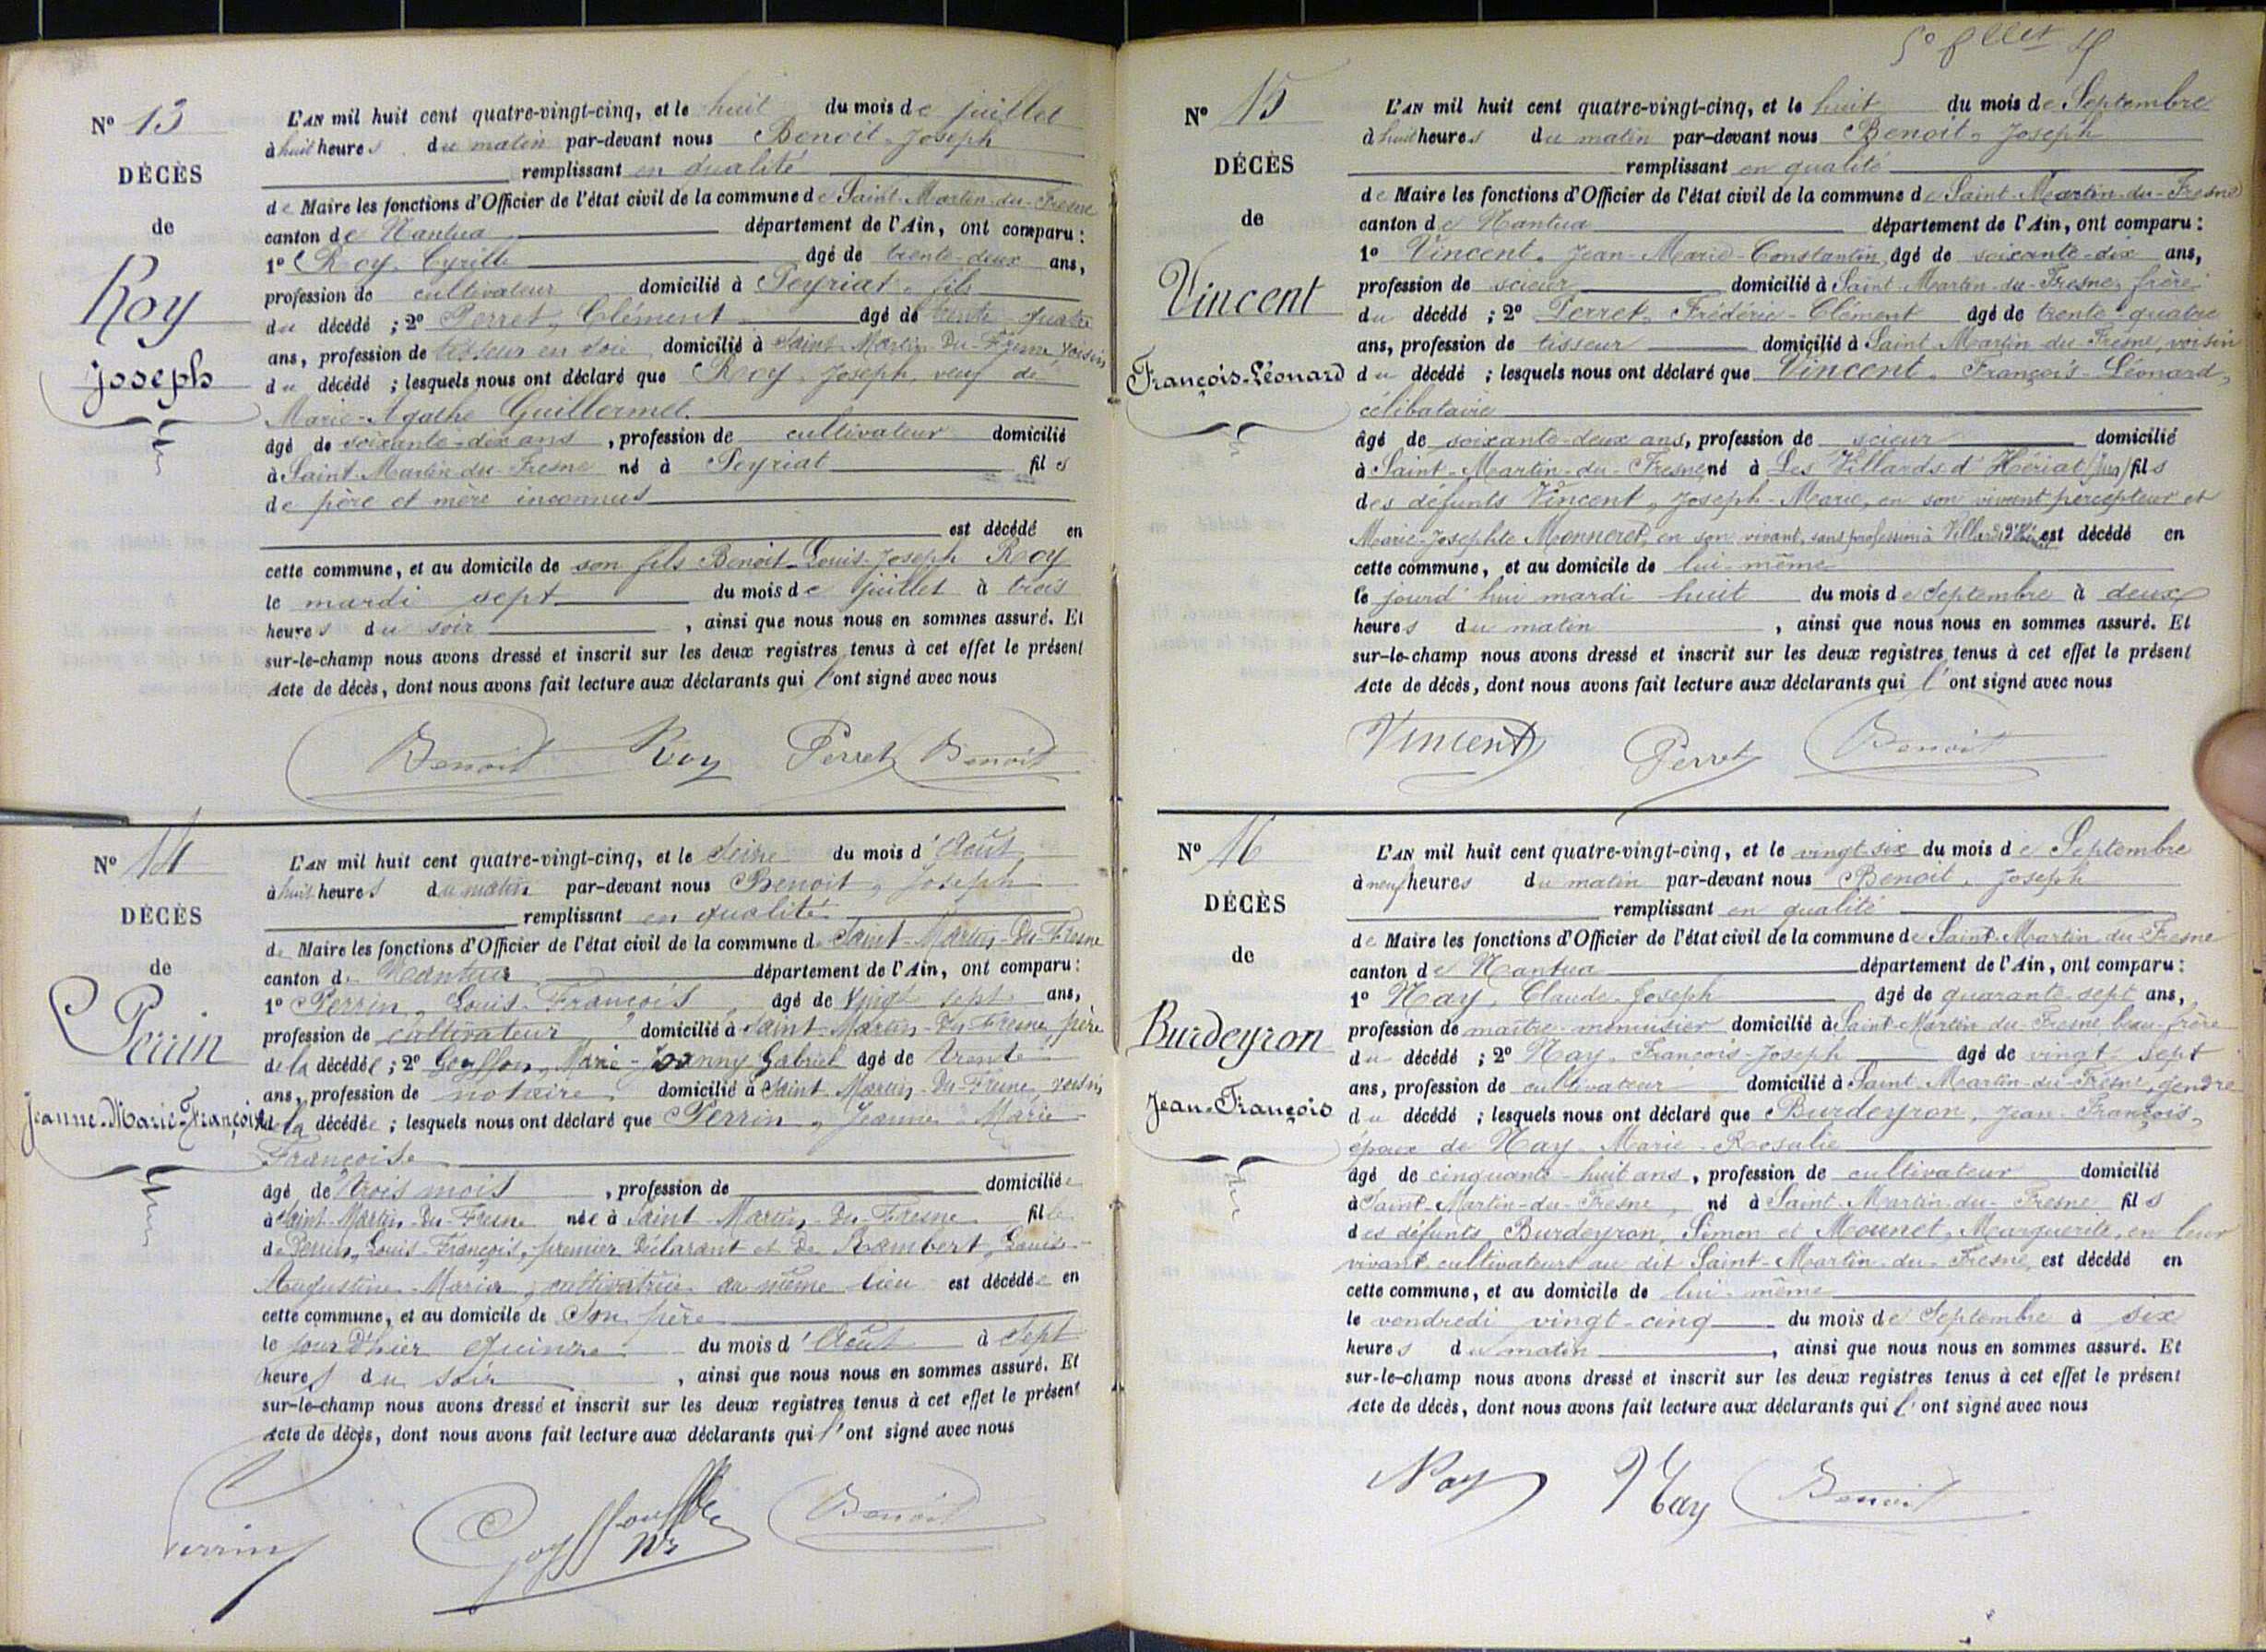 Nº 13
DÉCÈS
de
Roy
Joseph
L'AN mil huit cent quatre-vingt-cinq, et le huit du mois de juillet
à huit heures du matin par-devant nous Benoît, Joseph
remplissant en qualité
de Maire les fonctions d'Officier de l'état civil de la commune de Saint-Martin-du-Fresne
canton de Nantua département de l'Ain, ont comparu :
1º Roy, Cyrille âgé de trente-deux ans,
profession de cultivateur domicilié à Peyriat, fils
du décédé ; 2º Perret, Clément âgé de trente-quatre
ans, profession de tisseur en soie domicilié à Saint-Martin-Du-Fresne voisin
du décédé ; lesquels nous ont déclaré que Roy, Joseph, veuf de
Marie-Agathe Guillermet
âgé de soixante-dix ans , profession de cultivateur domicilié
à Saint-Martin-du-Fresne né à Peyriat fils
de père et mère inconnus
est décédé en
cette commune, et au domicile de son fils Benoit-Louis-Joseph Roy
le mardi sept du mois de juillet à trois
heures du soir , ainsi que nous nous en sommes assuré. Et
sur-le-champ nous avons dressé et inscrit sur les deux registres tenus à cet effet le présent
Acte de décès, dont nous avons fait lecture aux déclarants qui l'ont signé avec nous
Benoit Roy Perret Benoit
Nº 14
DÉCÈS
de
Perrin
Jeanne-Marie-Françoise
L'AN mil huit cent quatre-vingt-cinq, et le seize du mois d'Août
à huit heures du matin par-devant nous Benoît, Joseph
remplissant en qualité
de Maire les fonctions d'Officier de l'état civil de la commune de Saint-Martin-Du-Fresne
canton de Nantua département de l'Ain, ont comparu :
1º Perrin, Louis-François âgé de vingt sept ans,
profession de cultivateur domicilié à Saint-Martin-Du-Fresne père
de la décédée ; 2º Marie-Joanny Gabriel âgé de trente
ans, profession de notaire domicilié à Saint-Martin-Du-Fresne, voisin
de la décédée ; lesquels nous ont déclaré que Perrin, Jeanne-Marie
Françoise
âgé de trois mois , profession de domiciliée
à Saint-Martin-Du-Fresne née à Saint-Martin-Du-Fresne fille
de Perrin, Louis-François, premier Déclarant et De Rambert, Louise-
Augustine-Maria, cultivatrice au même lieu est décédée en
cette commune, et au domicile de Son père
le jour D'hier quinze du mois d'Août à sept
heures du soir , ainsi que nous nous en sommes assuré. Et
sur-le-champ nous avons dressé et inscrit sur les deux registres tenus à cet effet le présent
Acte de décès, dont nous avons fait lecture aux déclarants qui l'ont signé avec nous
Perrin Benoit
Nº 15
DÉCÈS
de
Vincent
François-Léonard
L'AN mil huit cent quatre-vingt-cinq, et le huit du mois de Septembre
à huit heures du matin par-devant nous Benoît, Joseph
remplissant en qualité
de Maire les fonctions d'Officier de l'état civil de la commune de Saint-Martin-du-Fresne
canton de Nantua département de l'Ain, ont comparu :
1º Vincent, Jean-Marie-Constantin, âgé de soixante-dix ans,
profession de scieur domicilié à Saint-Martin-du-Fresne, frère
du décédé ; 2º Perret, Frédéric-Clément âgé de trente-quatre
ans, profession de tisseur domicilié à Saint-Martin-du-Fresne, voisin
du décédé ; lesquels nous ont déclaré que Vincent, François-Léonard,
célibataire
âgé de soixante-deux ans, profession de scieur domicilié
à Saint-Martin-du-Fresne né à Les Villards d'Hériat (Jura) fils
des défunts Vincent, Joseph-Marie, en son vivant percepteur et
Marie-Josephte Monneret, en son vivant, sans profession à Villards d'Hériat est décédé en
cette commune, et au domicile de lui-même
le jourd'hui mardi huit du mois de Septembre à deux
heures du matin , ainsi que nous nous en sommes assuré. Et
sur-le-champ nous avons dressé et inscrit sur les deux registres tenus à cet effet le présent
Acte de décès, dont nous avons fait lecture aux déclarants qui l'ont signé avec nous
Vincent Perret Benoit
Nº 16
DÉCÈS
de
Burdeyron
Jean-François
L'AN mil huit cent quatre-vingt-cinq, et le vingt-six du mois de Septembre
à neuf heures du matin par-devant nous Benoît, Joseph
remplissant en qualité
de Maire les fonctions d'Officier de l'état civil de la commune de Saint-Martin-du-Fresne
canton de Nantua département de l'Ain, ont comparu :
1º Nay, Claude-Joseph âgé de quarante-sept ans,
profession de maître-menuisier domicilié à Saint-Martin-du-Fresne, beau-frère
du décédé ; 2º Nay, François-Joseph âgé de vingt-sept
ans, profession de cultivateur domicilié à Saint-Martin-du-Fresne, gendre
du décédé ; lesquels nous ont déclaré que Burdeyron, Jean-François,
époux de Nay, Marie-Rosalie
âgé de cinquante-huit ans , profession de cultivateur domicilié
à Saint-Martin-du-Fresne, né à Saint-Martin-du-Fresne fils
des défunts Burdeyron, Simon et Mounet, Marguerite, en leur
vivant cultivateurs au dit Saint-Martin-du-Fresne, est décédé en
cette commune, et au domicile de lui-même
le vendredi vingt-cinq du mois de Septembre à six
heures du matin , ainsi que nous nous en sommes assuré. Et
sur-le-champ nous avons dressé et inscrit sur les deux registres tenus à cet effet le présent
Acte de décès, dont nous avons fait lecture aux déclarants qui l'ont signé avec nous
Nay Nay Benoit